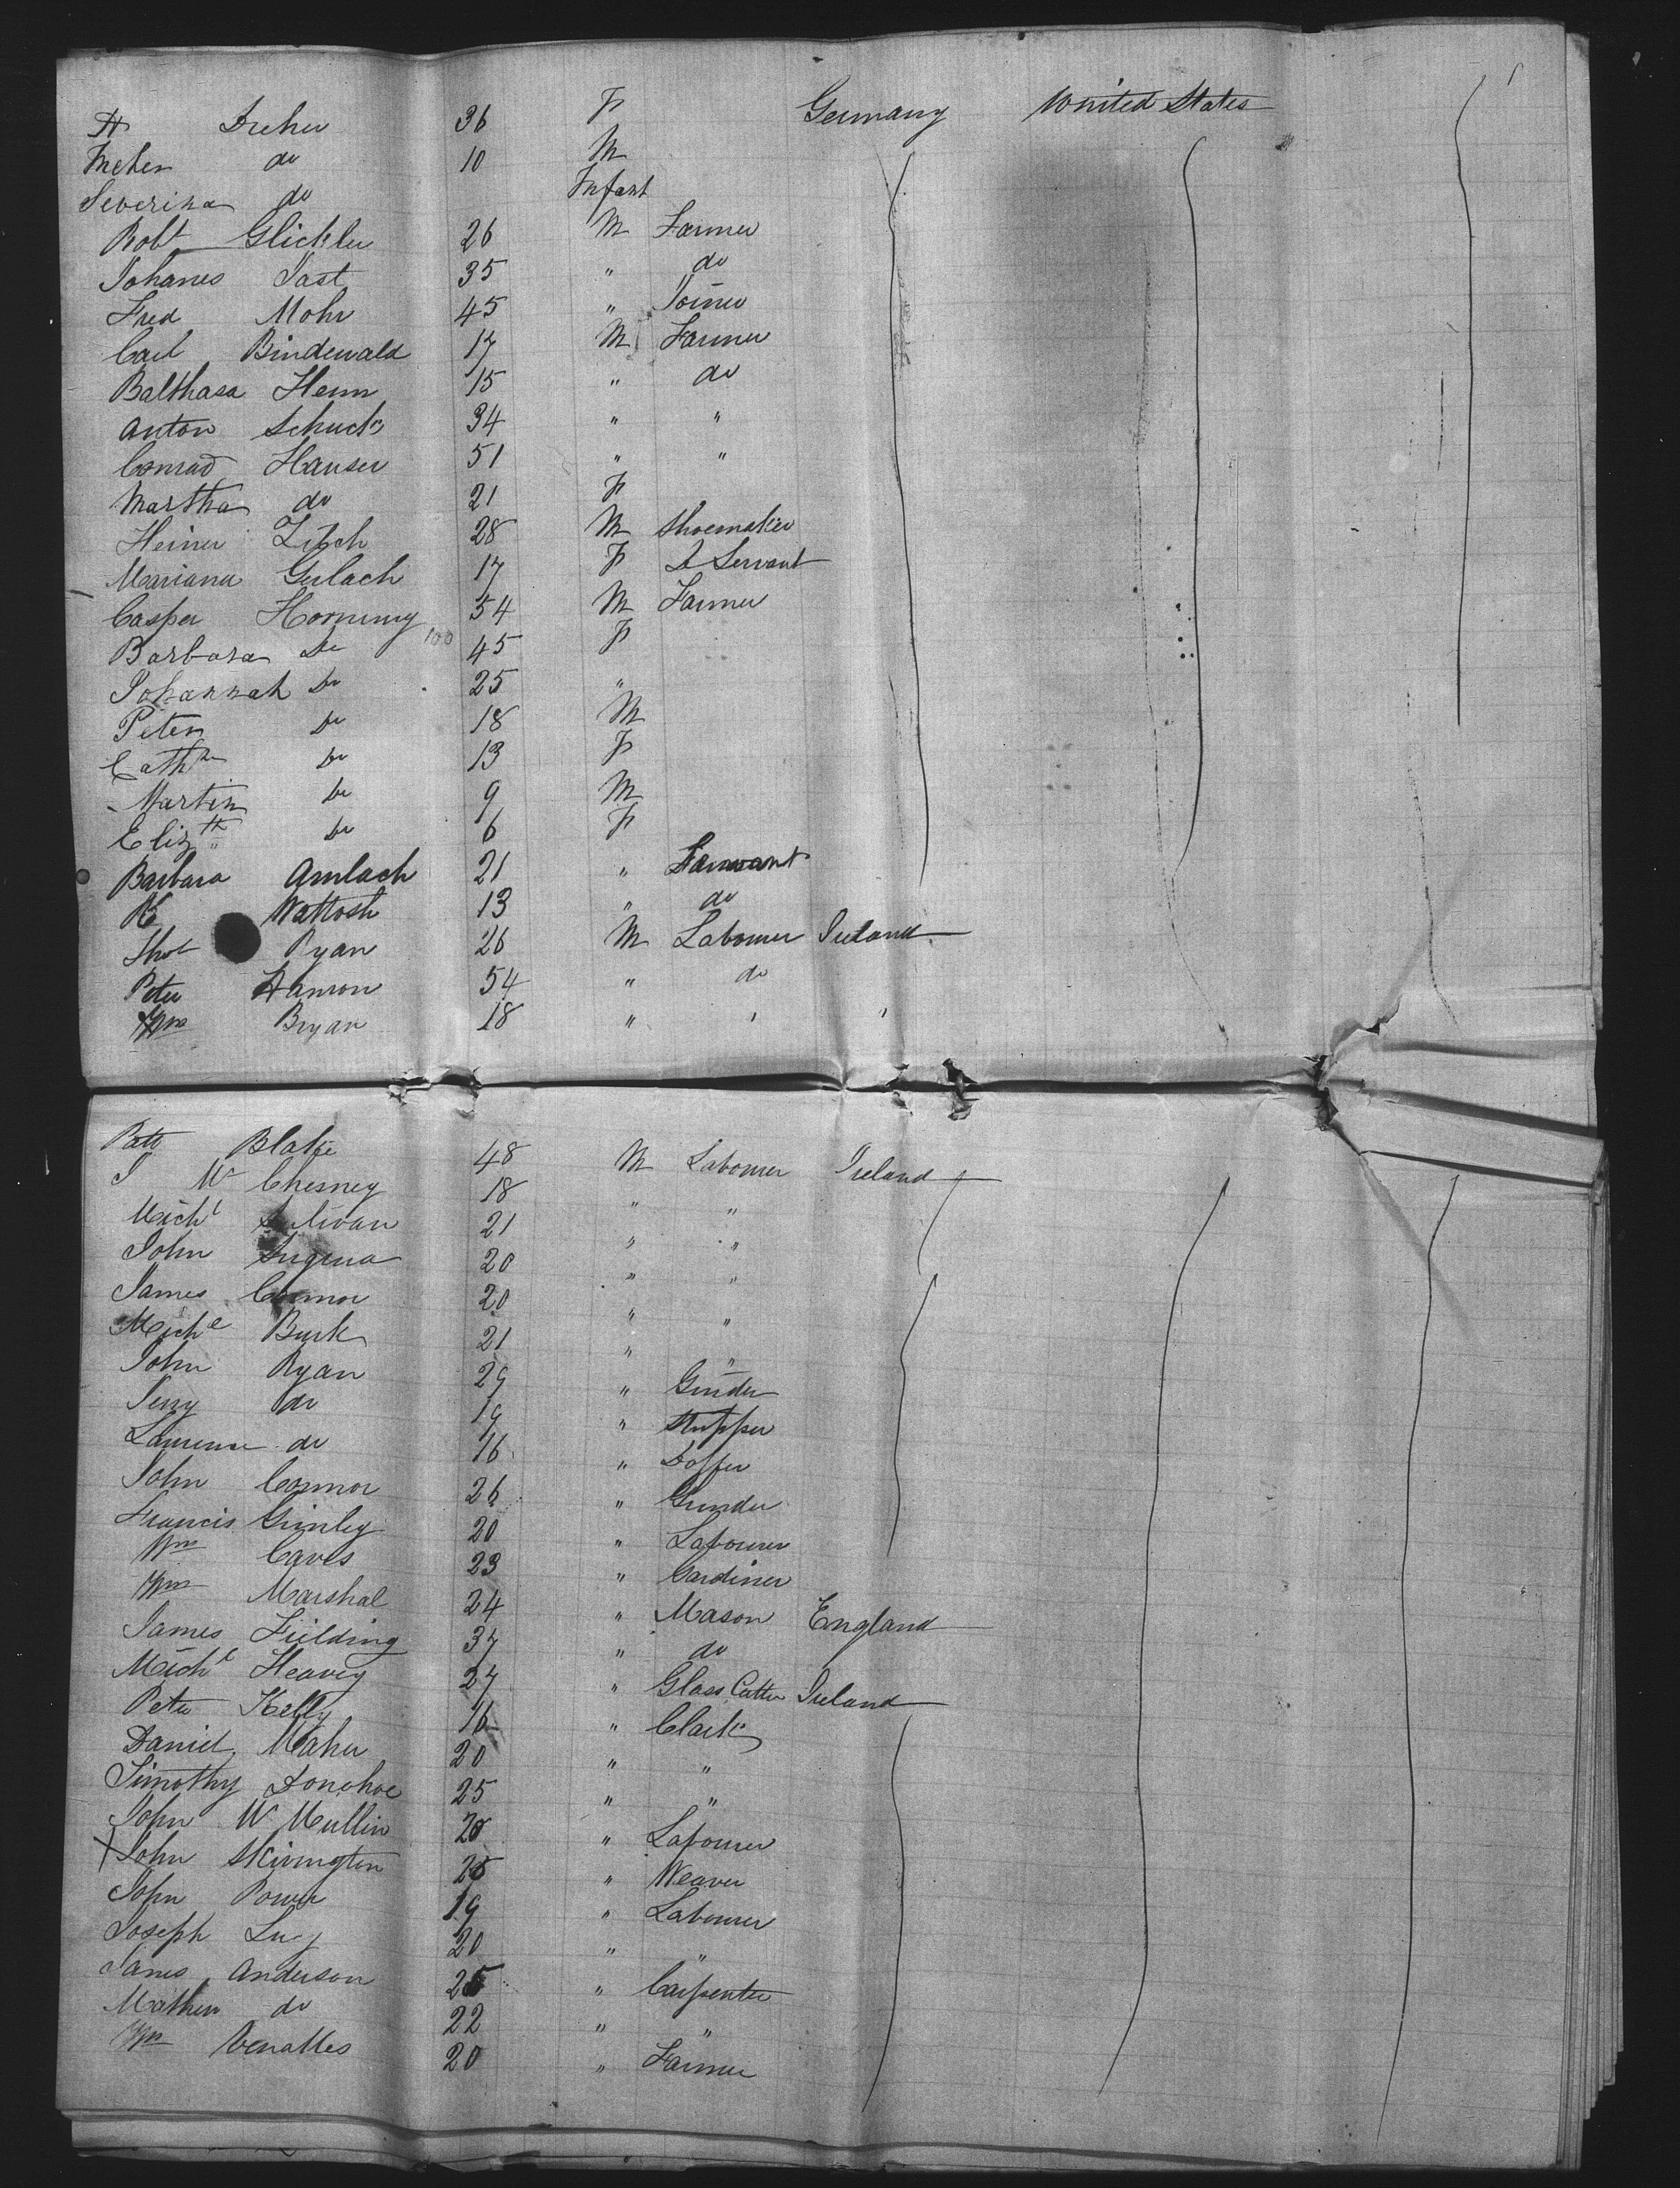 A Dreher 36 F Germany United States
Meher do 10 M
Severina do Infant
Robt Glickler 26 M Farmer
Johanes Jast 35 " do
Fred Mohr 45 " Joiner
Carl Bindewald 17 M Farmer
Balthasa Henn 15 " do
Anton Schuck 34 " "
Conrad Hauser 51 " "
Martha do 21 F
Heiner Zilch 28 M Shoemaker
Mariana Gerlach 17 F D Servant
Casper Hornung 54 M Farmer
Barbara Do 100 45 F
Johannah Do 25 "
Peter Do 18 M
Cathne Do 13 F
Martin Do 9 M
Elizth Do 6 F
Barbara Amlach 21 " Servant
K Wattosh 13 " do
Thos Ryan 26 M Labourer Ireland
Peter Hanron 54 " do
Wm Bryan 18 " " "
Patk Blake 48 M Labourer Ireland
J Mc Chesney 18 " "
Michl Sulivan 21 " "
John 20 " "
James Connor 20 " "
Michl Burk 21 " "
John Ryan 29 " Grinder
Jerry do 19 " Stripper
Laurence do 16 " Doffer
John Connor 26 " Grinder
Francis Grimley 20 " Labourer
Wm Caves 23 " Gardiner
Wm Marshal 24 " Mason England
James Fielding 37 " do
Michl Heavey 27 " Glass Cutter Ireland
Peter Kelly 16 " Clark
Daniel Maher 20 " "
Timothy Donohoe 25 " "
John Mc Mullin 20 " Labourer
X John Skivington 25 " Weaver
John Power 19 " Labourer
Joseph 20 " "
James Anderson 25 " Carpenter
Mathew do 22 " "
Wm Venables 20 " Farmer